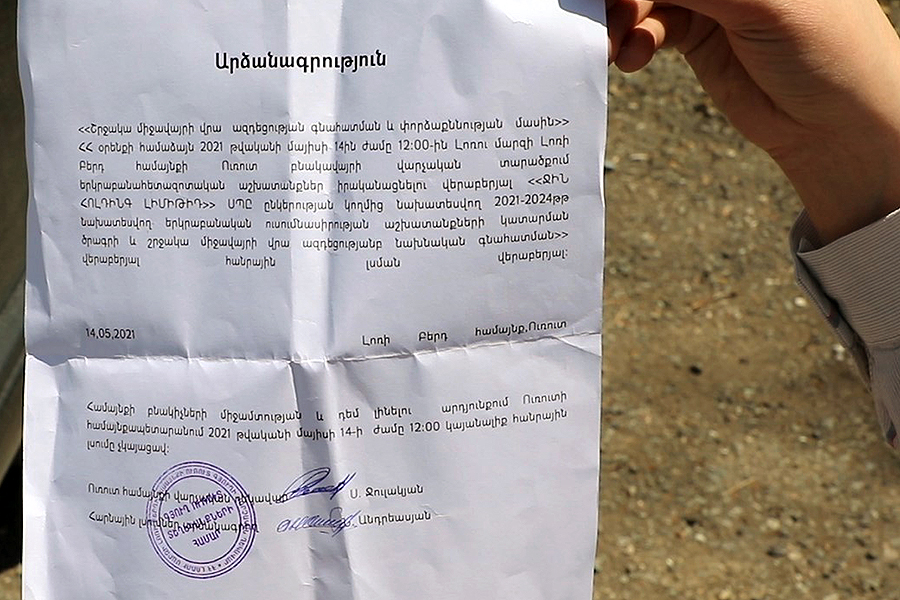 Արձանագրություն
<<Շրջակա միջավայրի վրա ազդեցության գնահատման և փորձաքննության մասին>>
ՀՀ օրենքի համաձայն 2021 թվականի մայիսի 14ին ժամը 12:00-ին Լոռու մարզի Լոռի
Բերդ համայնքի Ուռուտ բնակավարի վարչական տարածքում
երկրաբանահետազոտական աշխատանքներ իրականացնելու վերաբերյալ <<ՋԻՆ
ՀՈԼԴԻՆԳ ԼԻՄԻԹԻԴ>> ՍՊԸ ընկերության կողմից նախատեսվող 2021-2024թթ
նախատեսվող երկրաբանական ուսումնասիրության աշխատանքների կատարման
ծրագրի և շրջակա միջավայրի վրա ազդեցությանբ նախնական գնահատման>>
վերաբերյալ հանրային լսման վերաբերյալ:
14,05,2021 Լոռի Բերդ համայնք,Ուռուտ
Համայնքի բնակիչների միջամտության և դեմ լինելու արդյունքում Ուռուտի
համայնքապետարանում 2021 թվականի մայիսի 14-ի ժամը 12:00 կայանալիք հանրային
լսումը չկայացավ:
Ուռուտ համայնքի վարչական ղեկավար Ս. Ջուլակյան
Հարնային լսումներ Անդրեասյան